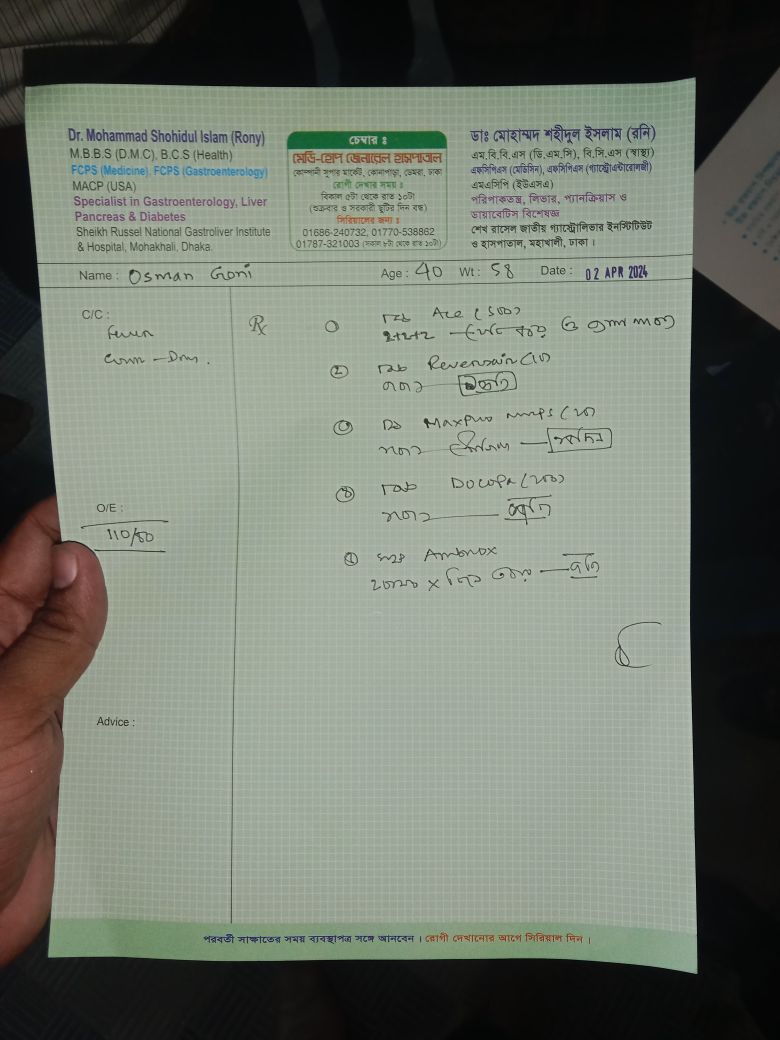 Dr. Mohammad Shohidul Islam (Rony)
M.B.B.S (D.M.C), B.C.S (Health)
FCPS (Medicine), FCPS (Gastroenterology)
MACP (USA)
Specialist in Gastroenterology, Liver
Pancreas & Diabetes
Sheikh Russel National Gastroliver Institute
& Hospital, Mohakhali, Dhaka.
চেম্বার ঃ
মেডি-হোপ জেনারেল হাসপাতাল
কোম্পানী সুপার মার্কেট, কোনাপাড়া, ডেমরা, ঢাকা
রোগী দেখার সময় ঃ
বিকাল ৫টা থেকে রাত ১০টা
(শুক্রবার ও সরকারী ছুটির দিন বন্ধ)
সিরিয়ালের জন্য ঃ
01686-240732, 01770-538862
01787-321003 (সকাল ৮টা থেকে রাত ১০টা)
ডাঃ মোহাম্মদ শহীদুল ইসলাম (রনি)
এম.বি.বি.এস (ডি.এম.সি), বি.সি.এস (স্বাস্থ্য)
এফসিপিএস (মেডিসিন), এফসিপিএস (গ্যাস্ট্রোএন্টারোলজী)
এমএসিপি (ইউএসএ)
পরিপাকতন্ত্র, লিভার, প্যানক্রিয়াস ও
ডায়াবেটিস বিশেষজ্ঞ
শেখ রাসেল জাতীয় গ্যাস্ট্রোলিভার ইনস্টিটিউট
ও হাসপাতাল, মহাখালী, ঢাকা ।
Name : Osman Goni Age : 40 Wt : 58 Date : 02 APR 2024
C/C :
Fever
Rx
Tab Ace (500)
2+2+2
Tab
Maxpro mups (20)
Tab Docopa (200)
Ambrox
O/E :
110/80
Advice :
পরবর্তী সাক্ষাতের সময় ব্যবস্থাপত্র সঙ্গে আনবেন । রোগী দেখানোর আগে সিরিয়াল দিন ।